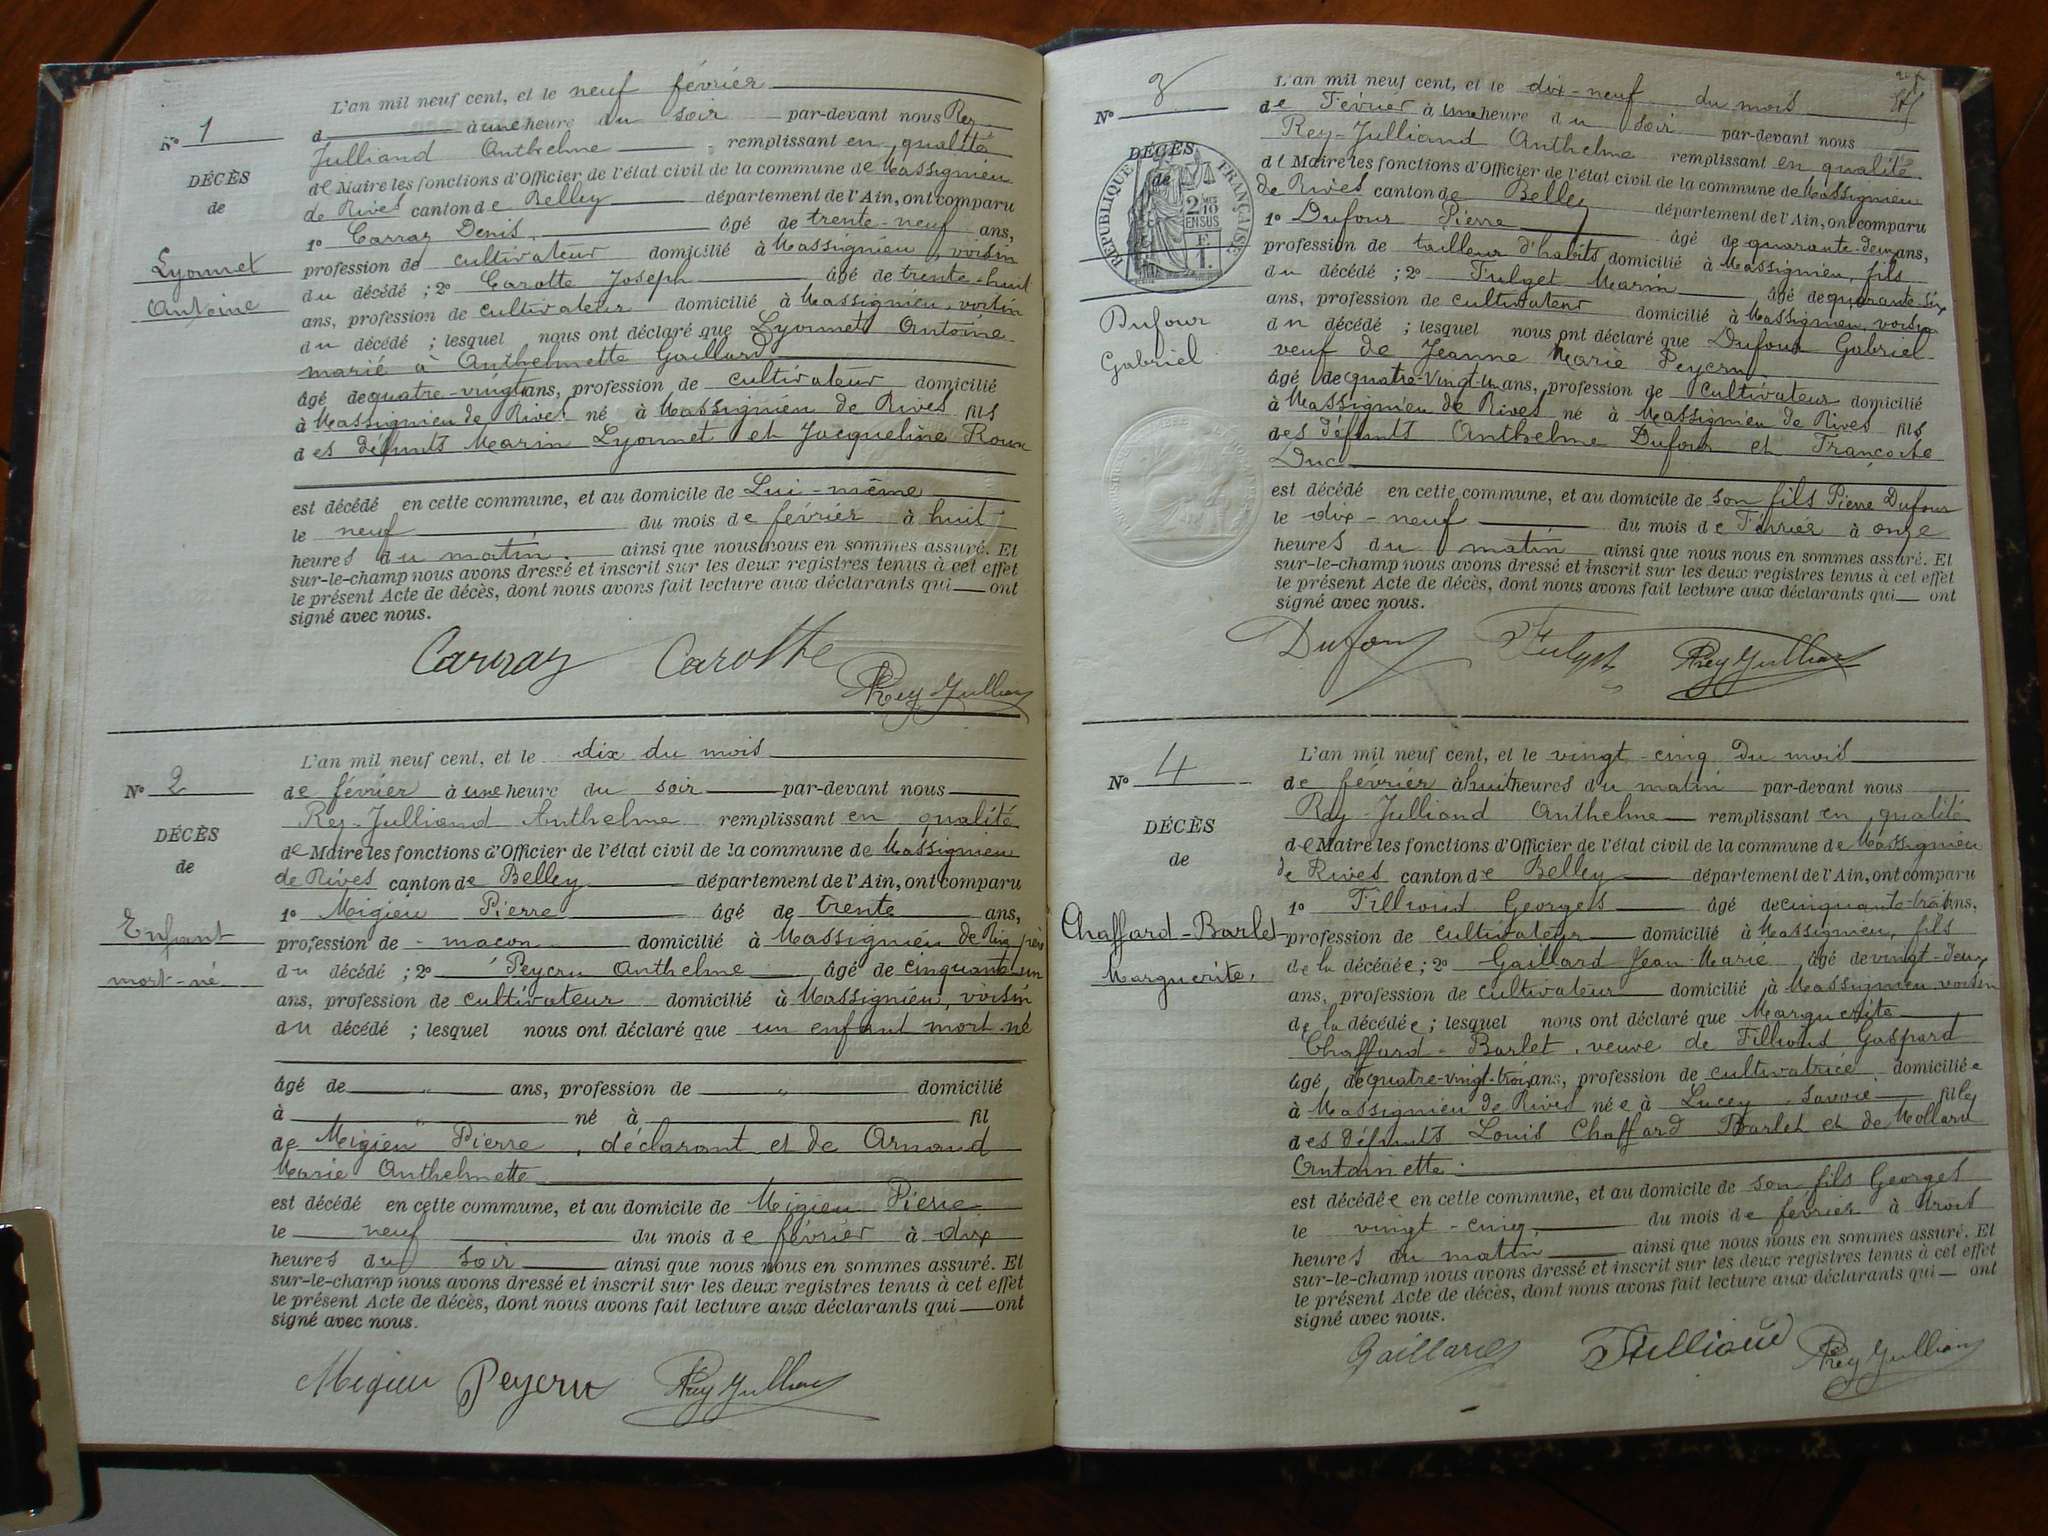 L'an mil neuf cent, et le neuf février
N° 1
d à une heure du soir par-devant nous Rey
Julliand Anthelme remplissant en qualité
DÉCÈS
de Maire les fonctions d'Officier de l'état civil de la commune de Massignieu
de
de Rives canton de Belley département de l'Ain, ont comparu
1° Carraz Denis âgé de trente-neuf ans,
Lyonnet
profession de cultivateur domicilié à Massignieu, voisin
du décédé ; 2° Carotte Joseph âgé de trente-huit
Antoine
ans, profession de cultivateur domicilié à Massignieu, voisin
du décédé ; lesquel nous ont déclaré que Lyonnet Antoine
marié à Anthelmette Gaillard
âgé de quatre-vingt ans, profession de cultivateur domicilié
à Massignieu de Rives né à Massignieu de Rives fils
des défunts Marin Lyonnet et Jacqueline Roux
est décédé en cette commune, et au domicile de Lui-même
le neuf du mois de février à huit
heures du matin ainsi que nous nous en sommes assuré. Et
sur-le-champ nous avons dressé et inscrit sur les deux registres tenus à cet effet
le présent Acte de décès, dont nous avons fait lecture aux déclarants qui ont
signé avec nous.
Carraz Carotte
Rey Jullian
L'an mil neuf cent, et le dix du mois
N° 2
de février à une heure du soir par-devant nous
Rey-Julliand Anthelme remplissant en qualité
DÉCÈS
de Maire les fonctions d'Officier de l'état civil de la commune de Massignieu
de
de Rives canton de Belley département de l'Ain, ont comparu
1° Migieu Pierre âgé de trente ans,
Enfant
profession de maçon domicilié à Massignieu de Rives, père
mort-né
du décédé ; 2° Peycru Anthelme âgé de cinquante-un
ans, profession de cultivateur domicilié à Massignieu, voisin
du décédé ; lesquel nous ont déclaré que un enfant mort né
âgé de " ans, profession de " domicilié
à " né à fil
de Migieu Pierre, déclarant et de Arnaud
Marie Anthelmette
est décédé en cette commune, et au domicile de Migieu Pierre
le neuf du mois de février à dix
heures du soir ainsi que nous nous en sommes assuré. Et
sur-le-champ nous avons dressé et inscrit sur les deux registres tenus à cet effet
le présent Acte de décès, dont nous avons fait lecture aux déclarants qui ont
signé avec nous.
Migieu Peycru Rey Jullian
L'an mil neuf cent, et le dix-neuf du mois
N° 3
de Février à une heure du soir par-devant nous
Rey-Julliand Anthelme remplissant en qualité
DÉCÈS
de
RÉPUBLIQUE FRANÇAISE
2 10 EN SUS
F 1.
de Maire les fonctions d'Officier de l'état civil de la commune de Massignieu
de Rives canton de Belley département de l'Ain, ont comparu
1° Dufour Pierre âgé de quarante-deux ans,
profession de tailleur d'habits domicilié à Massignieu, fils
du décédé ; 2° Fulget Marin âgé de quarante-six
ans, profession de cultivateur domicilié à Massignieu, voisin
Dufour
du décédé ; lesquel nous ont déclaré que Dufour Gabriel
Gabriel
veuf de Jeanne Marie Peycru
âgé de quatre-vingt-un ans, profession de cultivateur domicilié
à Massignieu de Rives né à Massignieu de Rives fils
des défunts Anthelme Dufour et Françoise
Duc
est décédé en cette commune, et au domicile de son fils Pierre Dufour
le dix-neuf du mois de Février à onze
heures du matin ainsi que nous nous en sommes assuré. Et
sur-le-champ nous avons dressé et inscrit sur les deux registres tenus à cet effet
le présent Acte de décès, dont nous avons fait lecture aux déclarants qui ont
signé avec nous.
Dufour Fulget Rey Jullian
L'an mil neuf cent, et le vingt-cinq du mois
N° 4
de février à huit heures du matin par-devant nous
Rey-Julliand Anthelme remplissant en qualité
DÉCÈS
de Maire les fonctions d'Officier de l'état civil de la commune de Massignieu
de
de Rives canton de Belley département de l'Ain, ont comparu
1° Fillioud Georges âgé de cinquante-trois ans,
Chaffard-Barlet
profession de cultivateur domicilié à Massignieu, fils
Marguerite.
de la décédée ; 2° Gaillard Jean-Marie âgé de vingt-deux
ans, profession de cultivateur domicilié à Massignieu, voisin
de la décédée ; lesquel nous ont déclaré que Marguerite
Chaffard-Barlet, veuve de Fillioud Gaspard
âgé de quatre-vingt-trois ans, profession de cultivatrice domiciliée
à Massignieu de Rives née à Lucey, Savoie fille
des défunts Louis Chaffard Barlet et de Mollard
Antoinette
est décédée en cette commune, et au domicile de son fils Georges
le vingt-cinq du mois de février à trois
heures du matin ainsi que nous nous en sommes assuré. Et
sur-le-champ nous avons dressé et inscrit sur les deux registres tenus à cet effet
le présent Acte de décès, dont nous avons fait lecture aux déclarants qui ont
signé avec nous.
Gaillard Fillioud Rey Jullian